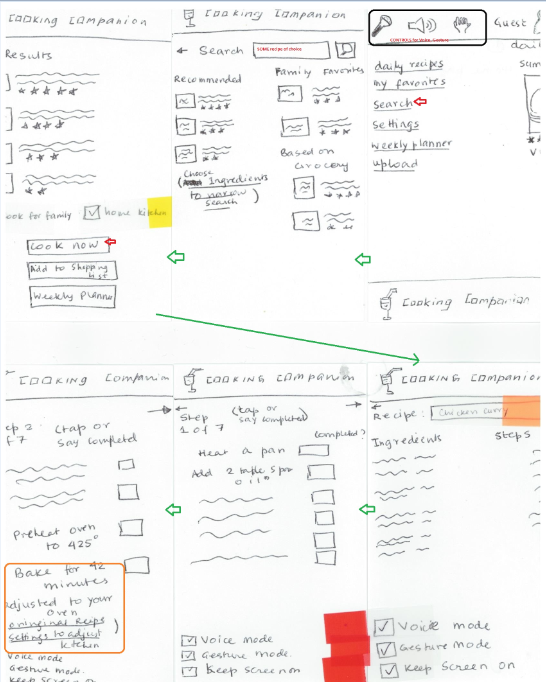 COOKING COMPANION
Results
ook for family: home kitchen
Cook now
Add to Shopping list
Weekly Planner
COOKING COMPANION
Search
SOME recipe of choice
Recommended
Family Favorites
Based on
Grocery
Choose
Ingredients
to narrow
search
CONTROLS for Voice, Gesture
Guest
daily recipes
my favorites
search
settings
weekly planner
upload
Cooking Companion
Cooking Companion
ep 2: (tap or
of 7 say completed
Preheat oven
to 425°
Bake for 42
minutes
adjusted to your
oven
settings to adjust
kitchen
Voice mode
Gesture mode.
Keep Screen on
COOKING COMPANION
Step (tap or
1 of 7 say completed)
completed?
Heat a pan
Add 2 table spn
oil
Voice mode
Gesture mode.
Keep Screen on
COOKING COMPANION
Recipe: Chicken curry
Ingredients
Steps
Voice mode
Gesture Mode
Keep Screen on